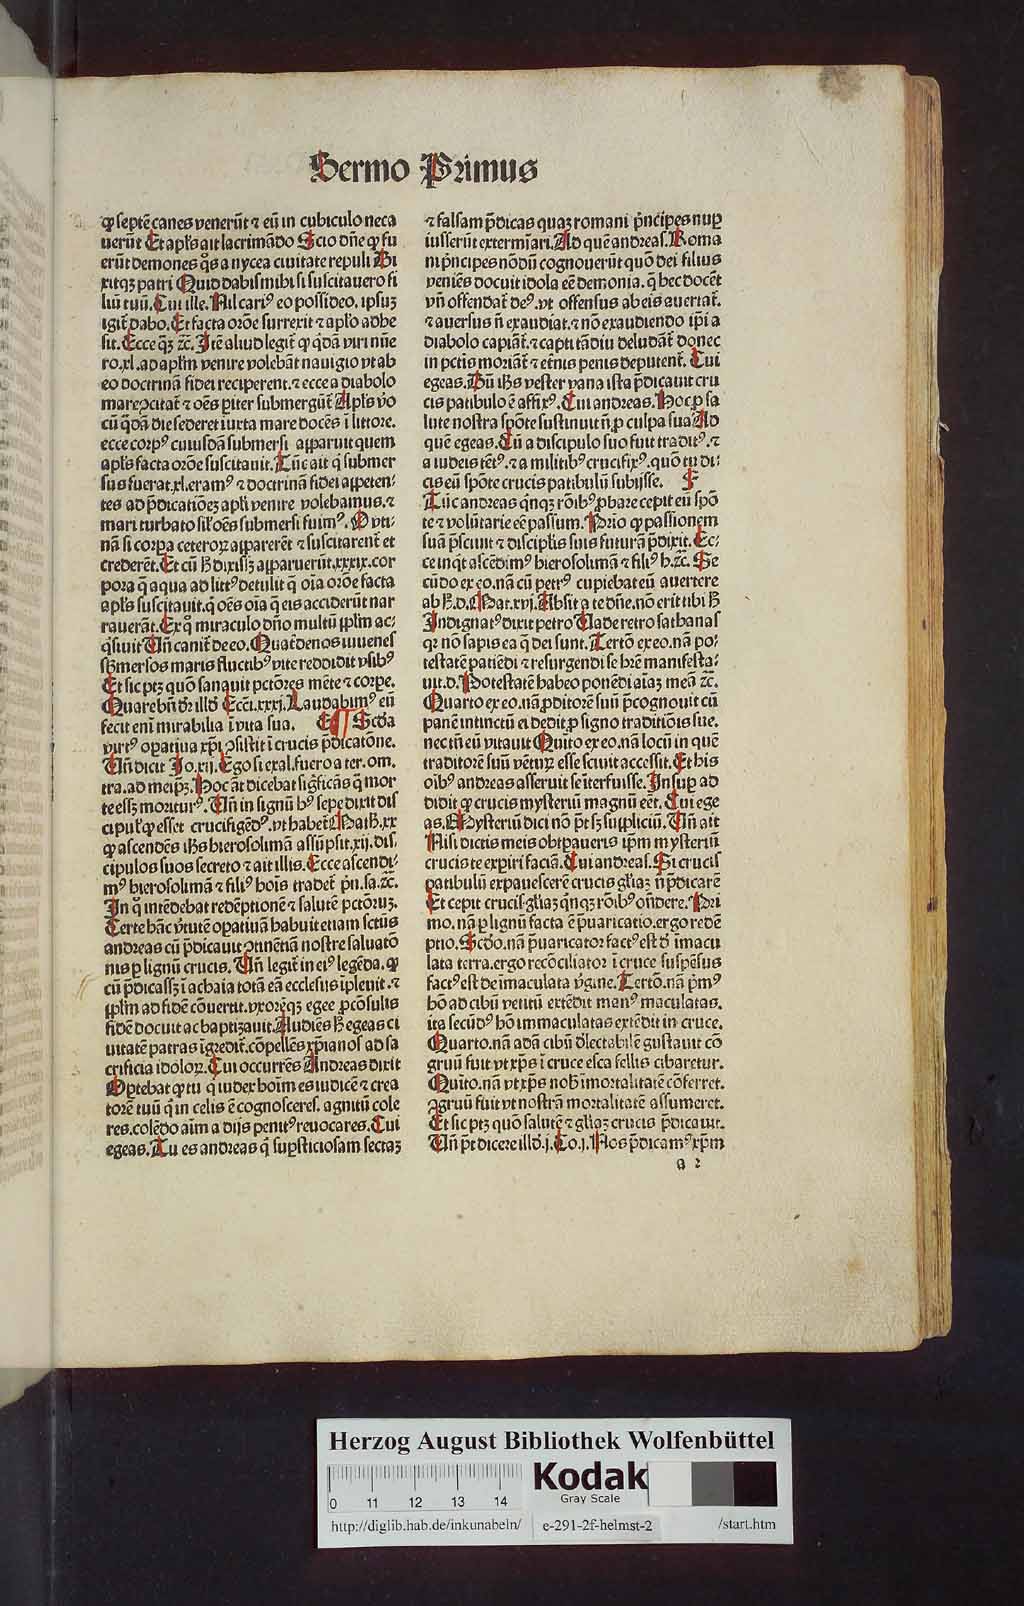 Sermo Primus
ꝙ septē canes venerūt ⁊ eū in cubiculo neca
uerūt Et apl's ait lacrimādo Scio dn̄e ꝙ fu
erūt demones q̊s a nycea ciuitate repuli Di
xitqꝫ patri Quid dabis mihi si suscitauero fi
liū tuū. Cui ille. Nil cariꝰ eo possideo. ipsuꝫ
igit̄ dabo. Et facta orōe surrexit ⁊ apl'o adhe
sit. Ecce q̄ꝫ ⁊c̄. Itē aliud legit̄ ꝙ q̄dā viri nūe
ro .xl. ad apl'm venire volebāt nauigio vt ab
eo doctrinā fidei reciperent. ⁊ ecce a diabolo
mare ↄcitat̄ ⁊ oēs p̄iter submergūt̄ Apl's v̓o
cū q̄dā die sederet iuxta mare docēs ī littore.
ecce corpꝰ cuiusdā submersi apparuit quem
apl's facta orōe suscitauit. Tūc ait q̄ submer
sus fuerat .xl. eramꝰ ⁊ doctrinā fidei appeten-
tes ad p̄dicatiōeꝫ apl'i venire volebamus. ⁊
mari turbato sil' oēs submersi fuimꝰ. O vti-
nā si corpa ceteroꝝ apparerēt ⁊ suscitarent̄ et
crederēt. Et cū h̄ dixissꝫ apparuerūt .xxxix. cor
pora q̄ aqua ad littꝰ detulit q̄ oīa orōe facta
apl's suscitauit. q̄ oēs oīa q̄ eis acciderūt nar
rauerāt. Ex q̊ miraculo dn̄o multū ppl'm ac-
q̄siuit Vn̄ canit̄ de eo. Quat̄denos iuuenes
sb̄mersos maris fluctibꝰ vite reddidit vsibꝰ
Et sic ptꝫ quō sanauit pctōres mēte ⁊ corpe.
Quare bn̄ dr̄ illd̓ Ecc̄i .xxxj. Laudabimꝰ eū
fecit enī mirabilia ī vita sua. C Scd̓a
virtꝰ oꝑatiua xp̄i ↄsistit ī crucis p̄dicatōne.
Vn̄ dicit Jo. xij. Ego si exal. fuero a ter. om.
tra. ad meip̄ꝫ. Hoc āt dicebat sig̓ficās q̄ mor
te eēꝫ moriturꝰ. Vn̄ in signū hꝰ sepe dixit dis
cipul' ꝙ esset crucifigēdꝰ. vt habet̄ Math̄. xx
ꝙ ascendēs ih̄s hierosolimā assūpsit .xij. dis.
cipulos suos secreto ⁊ ait illis. Ecce ascendi-
mꝰ hierosolimā ⁊ filiꝰ hoīs tradet̄ p̄n. sa. ⁊c̄.
In q̊ intēdebat redēptionē ⁊ salutē pctōruꝫ.
Certe hāc v̓tutē oꝑatiuā habuit etiam sctūs
andreas cū p̄dicauit ↄtinētiā nostre saluatō
nis ꝑ lignū crucis. Vn̄ legit̄ in eiꝰ legēda. ꝙ
cū p̄dicassꝫ ī achaia totā eā ecclesijs īpleuit. ⁊
ppl'm ad fidē cōuertit. vxorēqꝫ egee ꝓcōsulis
fidē docuit ac baptizauit. Audiēs h̄ egeas ci
uitatē patras īgredit̄. cōpellēs xp̄ianos ad sa
crificia idoloꝝ. Cui occurrēs Andreas dixit
Oꝑtebat ꝙ tu q̄ iudex hoīm es iudicē ⁊ crea
torē tuū q̄ in celis ē cognosceres. agnitū cole
res. colēdo aīm a dijs penitꝰ reuocares. Cui
egeas. Tu es andreas q̄ suꝑsticiosam sectaꝫ
⁊ falsam p̄dicas quaꝫ romani p̄ncipes nup
iusserūt extermīari. Ad quē andreas. Roma
ni p̄ncipes nōdū cognouerūt quō dei filius
veniēs docuit idola eē demonia. q̄ hec docēt
vn̄ offendat̄ deꝰ. vt offensus ab eis auertat̄.
⁊ auersus n̄ exaudiat. ⁊ nō exaudiendo ip̄i a
diabolo capiāt̄. ⁊ capti tādiu deludāt̄ donec
in pctis moriāt̄ ⁊ et̄nis penis deputent̄. Cui
egeas. Dū ih̄s vester vana ista p̄dicauit cru
cis patibulo ē affixꝰ. Cui andreas. Hoc ꝓ sa
lute nostra spōte sustinuit n̄ ꝓ culpa sua Ad
quē egeas. Cū a discipulo suo fuit traditꝰ. ⁊
a iudeis tētꝰ. ⁊ a militibꝰ crucifixꝰ. quō tu di-
cis eū spōte crucis patibulū subijsse. F
Tūc andreas q̄nqꝫ rōibꝰ ꝓbare cepit eū spō
te ⁊ volūtarie eē passum. Prio ꝙ passionem
suā p̄sciuit ⁊ discipl'is suis futurā p̄dixit. Ec-
ce inq̄t ascēdimꝰ hierosolimā ⁊ filiꝰ h. ⁊c̄. Se
cūdo ex eo. nā cū petrꝰ cupiebat eū auertere
ab h̄. d. Mat. xvj. Absit a te dn̄e. nō erit tibi h̄
Indignatꝰ dixit petro Vade retro sathanas
qꝛ nō sapis ea q̄ dei sunt. Tertō ex eo. nā po-
testatē patiēdi ⁊ resurgendi se hr̄e manifesta-
uit. d. Potestatē habeo ponēdi aīaꝫ meā ⁊c̄.
Quarto ex eo. nā ꝓditorē suū p̄cognouit cū
panē intinctū ei dedit ꝓ signo traditiōis sue.
nec tn̄ eū vitauit Quīto ex eo. nā locū in quē
traditorē suū vētuꝝ esse sciuit accessit. Et his
oībꝰ andreas asseruit se īterfuisse. Insuꝑ ad
didit ꝙ crucis mysteriū magnū eēt. Cui ege
as. Mysteriū dici nō p̄t sꝫ suppliciū. Vn̄ ait
Nisi dictis meis obtꝑaueris ip̄m mysteriū
crucis te exꝑiri faciā. Cui andreas. Si crucis
patibulū expauescerē crucis gl'iaꝫ n̄ p̄dicarē
Et cepit crucis gl'iaꝫ q̄nqꝫ rōibꝰ on̄dere. Pri
mo. nā ꝑ lignū facta ē p̄uaricatio. ergo redē
ptio. Scd̓o. nā p̄uaricator factꝰ est d̓ īmacu
lata terra. ergo recōciliator ī cruce suspēsus
factꝰ est de īmaculata v̓gine. Tertō. nā p̄mꝰ
hō ad cibū vetitū extēdit manꝰ maculatas.
ita secūdꝰ hō immaculatas extēdit in cruce.
Quarto. nā adā cibū d̓lectabilē gustauit cō
gruū fuit vt xp̄s ī cruce esca fellis cibaretur.
Quīto. nā vt xp̄s nob̄ īmortalitatē cōferret.
ↄgruū fuit vt nostrā mortalitatē assumeret.
Et sic ptꝫ quō salutē ⁊ gl'iaꝫ crucis p̄dicauit.
Vn̄ p̄t dicere illd̓ .j. Co. j. Nos p̄dicamꝰ xp̄m
a 2
Herzog August Bibliothek Wolfenbüttel
0 11 12 13 14
Kodak
Gray Scale
http://diglib.hab.de/inkunabeln/ e-291-2f-helmst-2 /start.htm